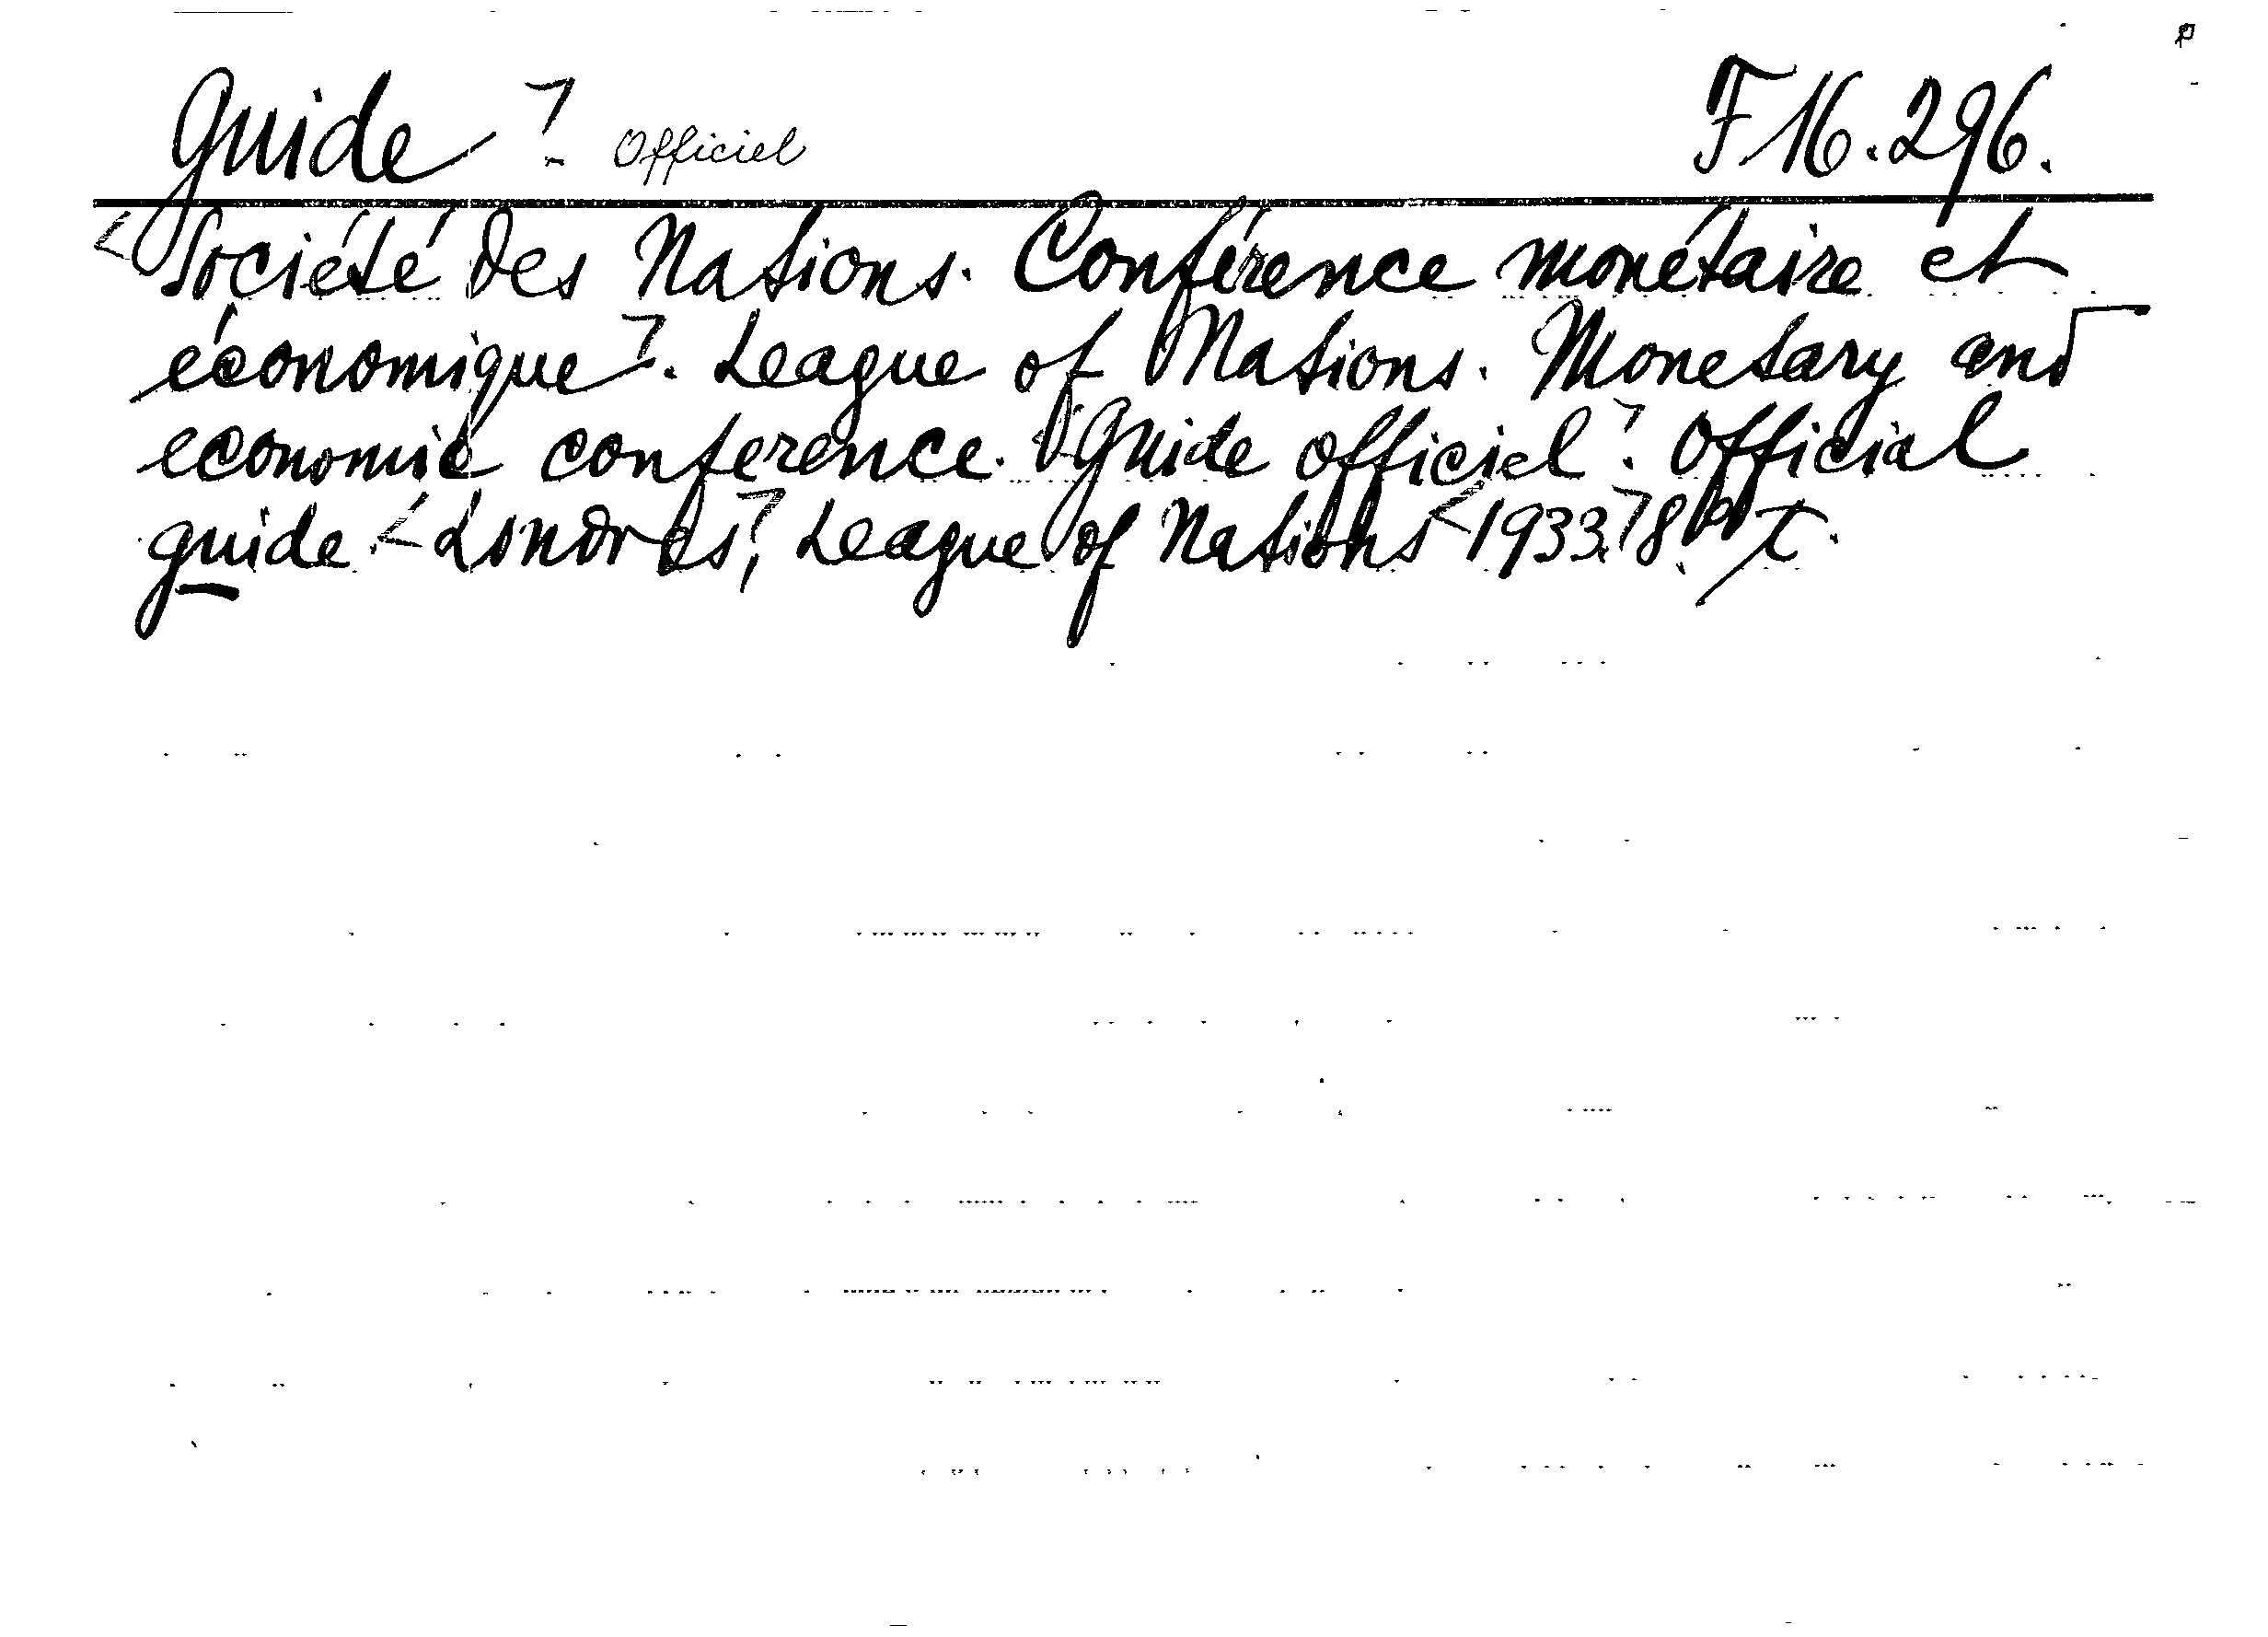 Guide 7. Officiel F 16.296.
<Société des Nations. Conférence monétaire et
économique7. League of Nations. Monetary and
economic conference. <Guide officiel7. Official
guide. <Londres7, League of Nations <1933.7 8.° T.